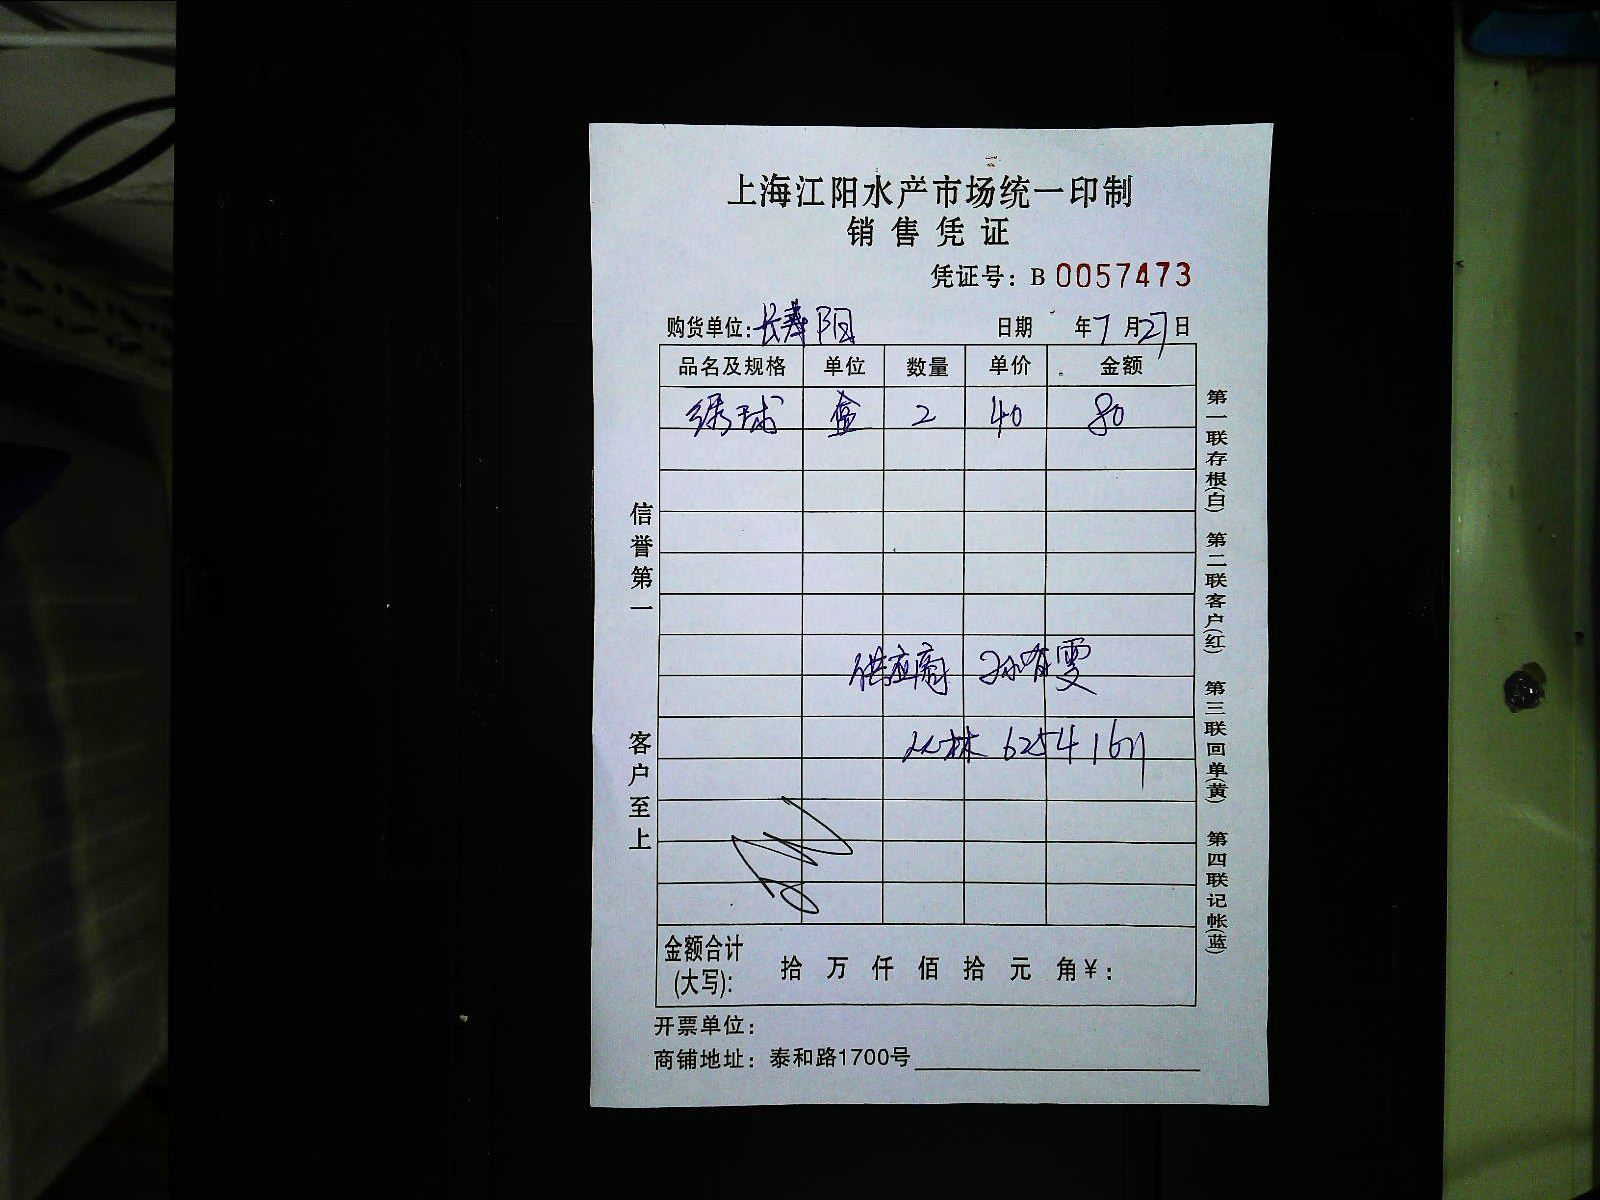 上海江阳水产市场统一印制
销售凭证
凭证号：B 0057473
购货单位：长寿 阳 日期 年7月27日
品名及规格 单位 数量 单价 金额
绣球 盒 2 40 80
供应商 孙有雯
林 6254 1671
金额合计(大写)： 拾 万 仟 佰 拾 元 角￥：
开票单位：
商铺地址：泰和路1700号
信誉第一 客户至上
第一联存根(白) 第二联客户(红) 第三联回单(黄) 第四联记帐(蓝)